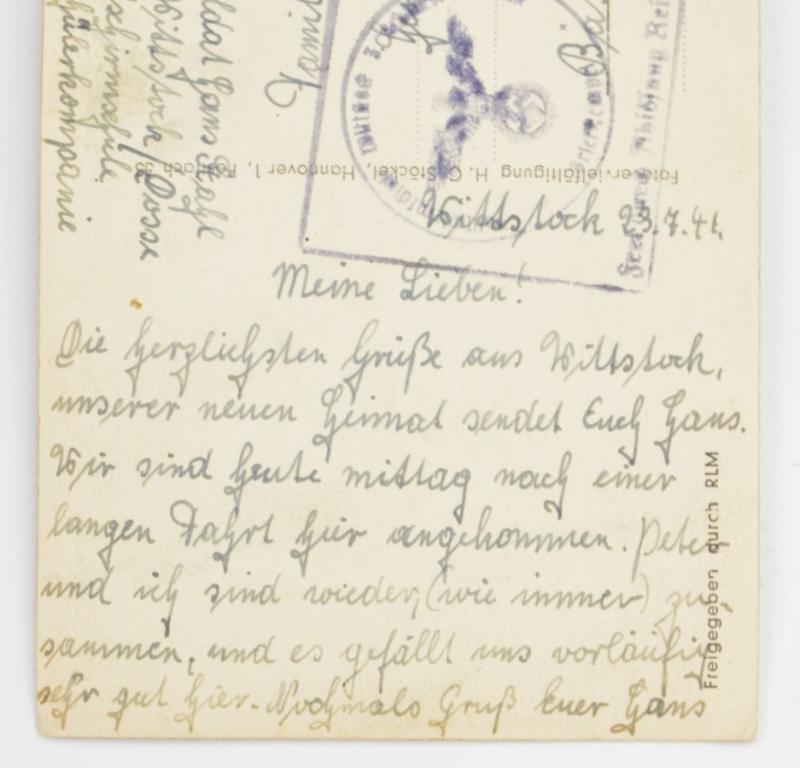 Wittstock 23.7.41.
Meine Lieben!
Die herzlichsten Grüße aus Wittstock,
unserer neuen Heimat sendet Euch Hans.
Wir sind heute mittag nach einer
langen Fahrt hier angekommen. Peter
und ich sind wieder, (wie immer) zu-
sammen, und es gefällt uns vorläufig
sehr gut hier. Nochmals Gruß Euer Hans
Freigegeben durch RLM
Fotovervielfältigung H. G. Stöckel, Hannover 1, Postfach 53
Hans
Wittstock/Dosse